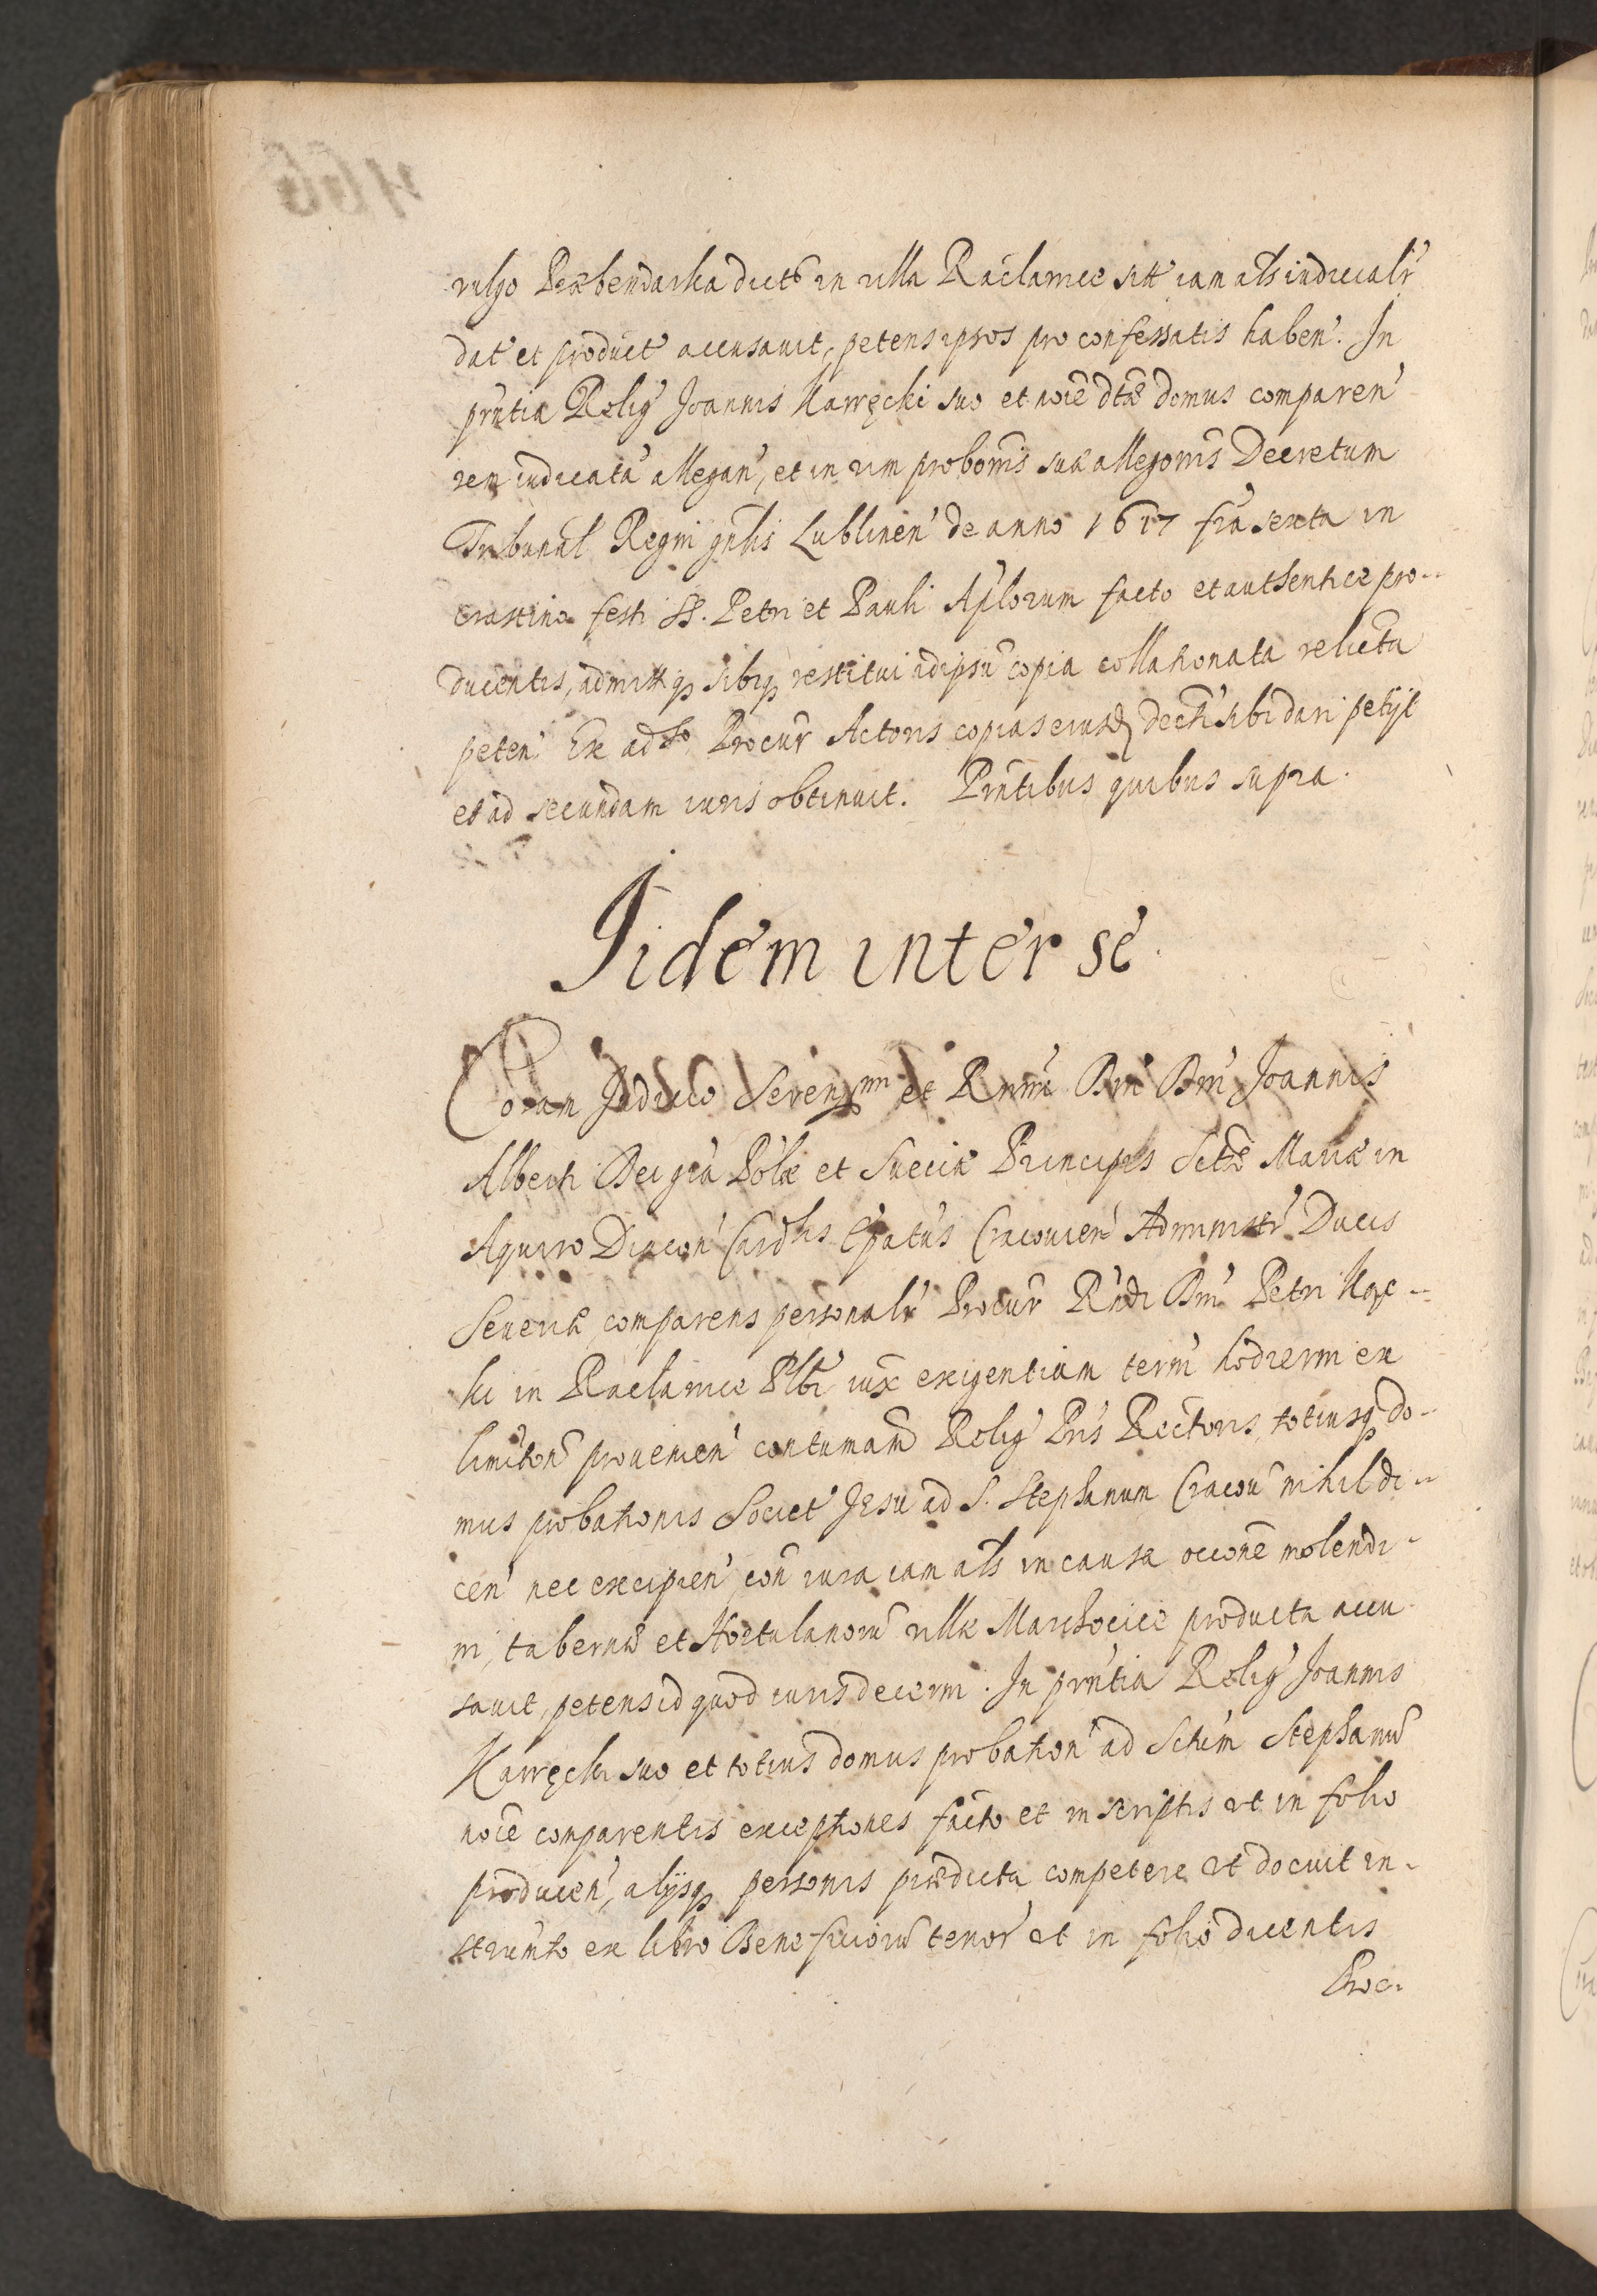 vulgo Præbendarska dict in villa Raclawice sitt iam als iudicialr
dat et product accusavit, petens ipsos pro confessatis haberi. In
pñtia Relig Joannis Kawęcki suo et noïe dtæ domus comparen
rem iudicatã allegan, et in vim probonis suæ allegonis Decretum
Tribunal Regni gnlis Lublinen de anno 1617 fria sexta in
crastino festi SS. Petri et Pauli Aplorum facto et authentice pro-
ducentis, admittq sibiq restitui idipsũ copia collationata relicta
peten Ex adso Procur Actoris copias eiusd decti sibi dari petijt
et ad secundam iuris obtinuit. Pñtibus quibus supra.
Iidem inter se
Coram Judicio Serenssmi et Rñdmi Dni Dni Joannis
Alberti Dei gra Polæ et Sueciæ Principis Sctæ Mariæ in
Aquiro Diacon Cardlis Epatus Cracovien Administr Ducis
Severiæ comparens personalr Procur Rndi Dni Petri
ki in Raclawice Plbi iux exigentiam termi hodierni ex
limiton provenien contumam Relig Pris Rectoris, totiusq do-
mus probationis Societ Jesu ad S. Stephanum Cracov nihil di-
cen nec excipien con iura iam als in causa occone molendi-
ni, tabernæ et Hortulanorũ villæ Marchocice producta accu
savit, petens id quod iuris decerni. In pñtia Relig Joannis
Kawęcki suo et totius domus probation ad Sctum Stephanũ
noïe comparentis exceptiones facto et in scriptis ut in folio
producen, alijsq personis prædicta competere ut docuit in-
strumto ex libro Beneficiorũ tenor ut in folio dicentis
Proc-